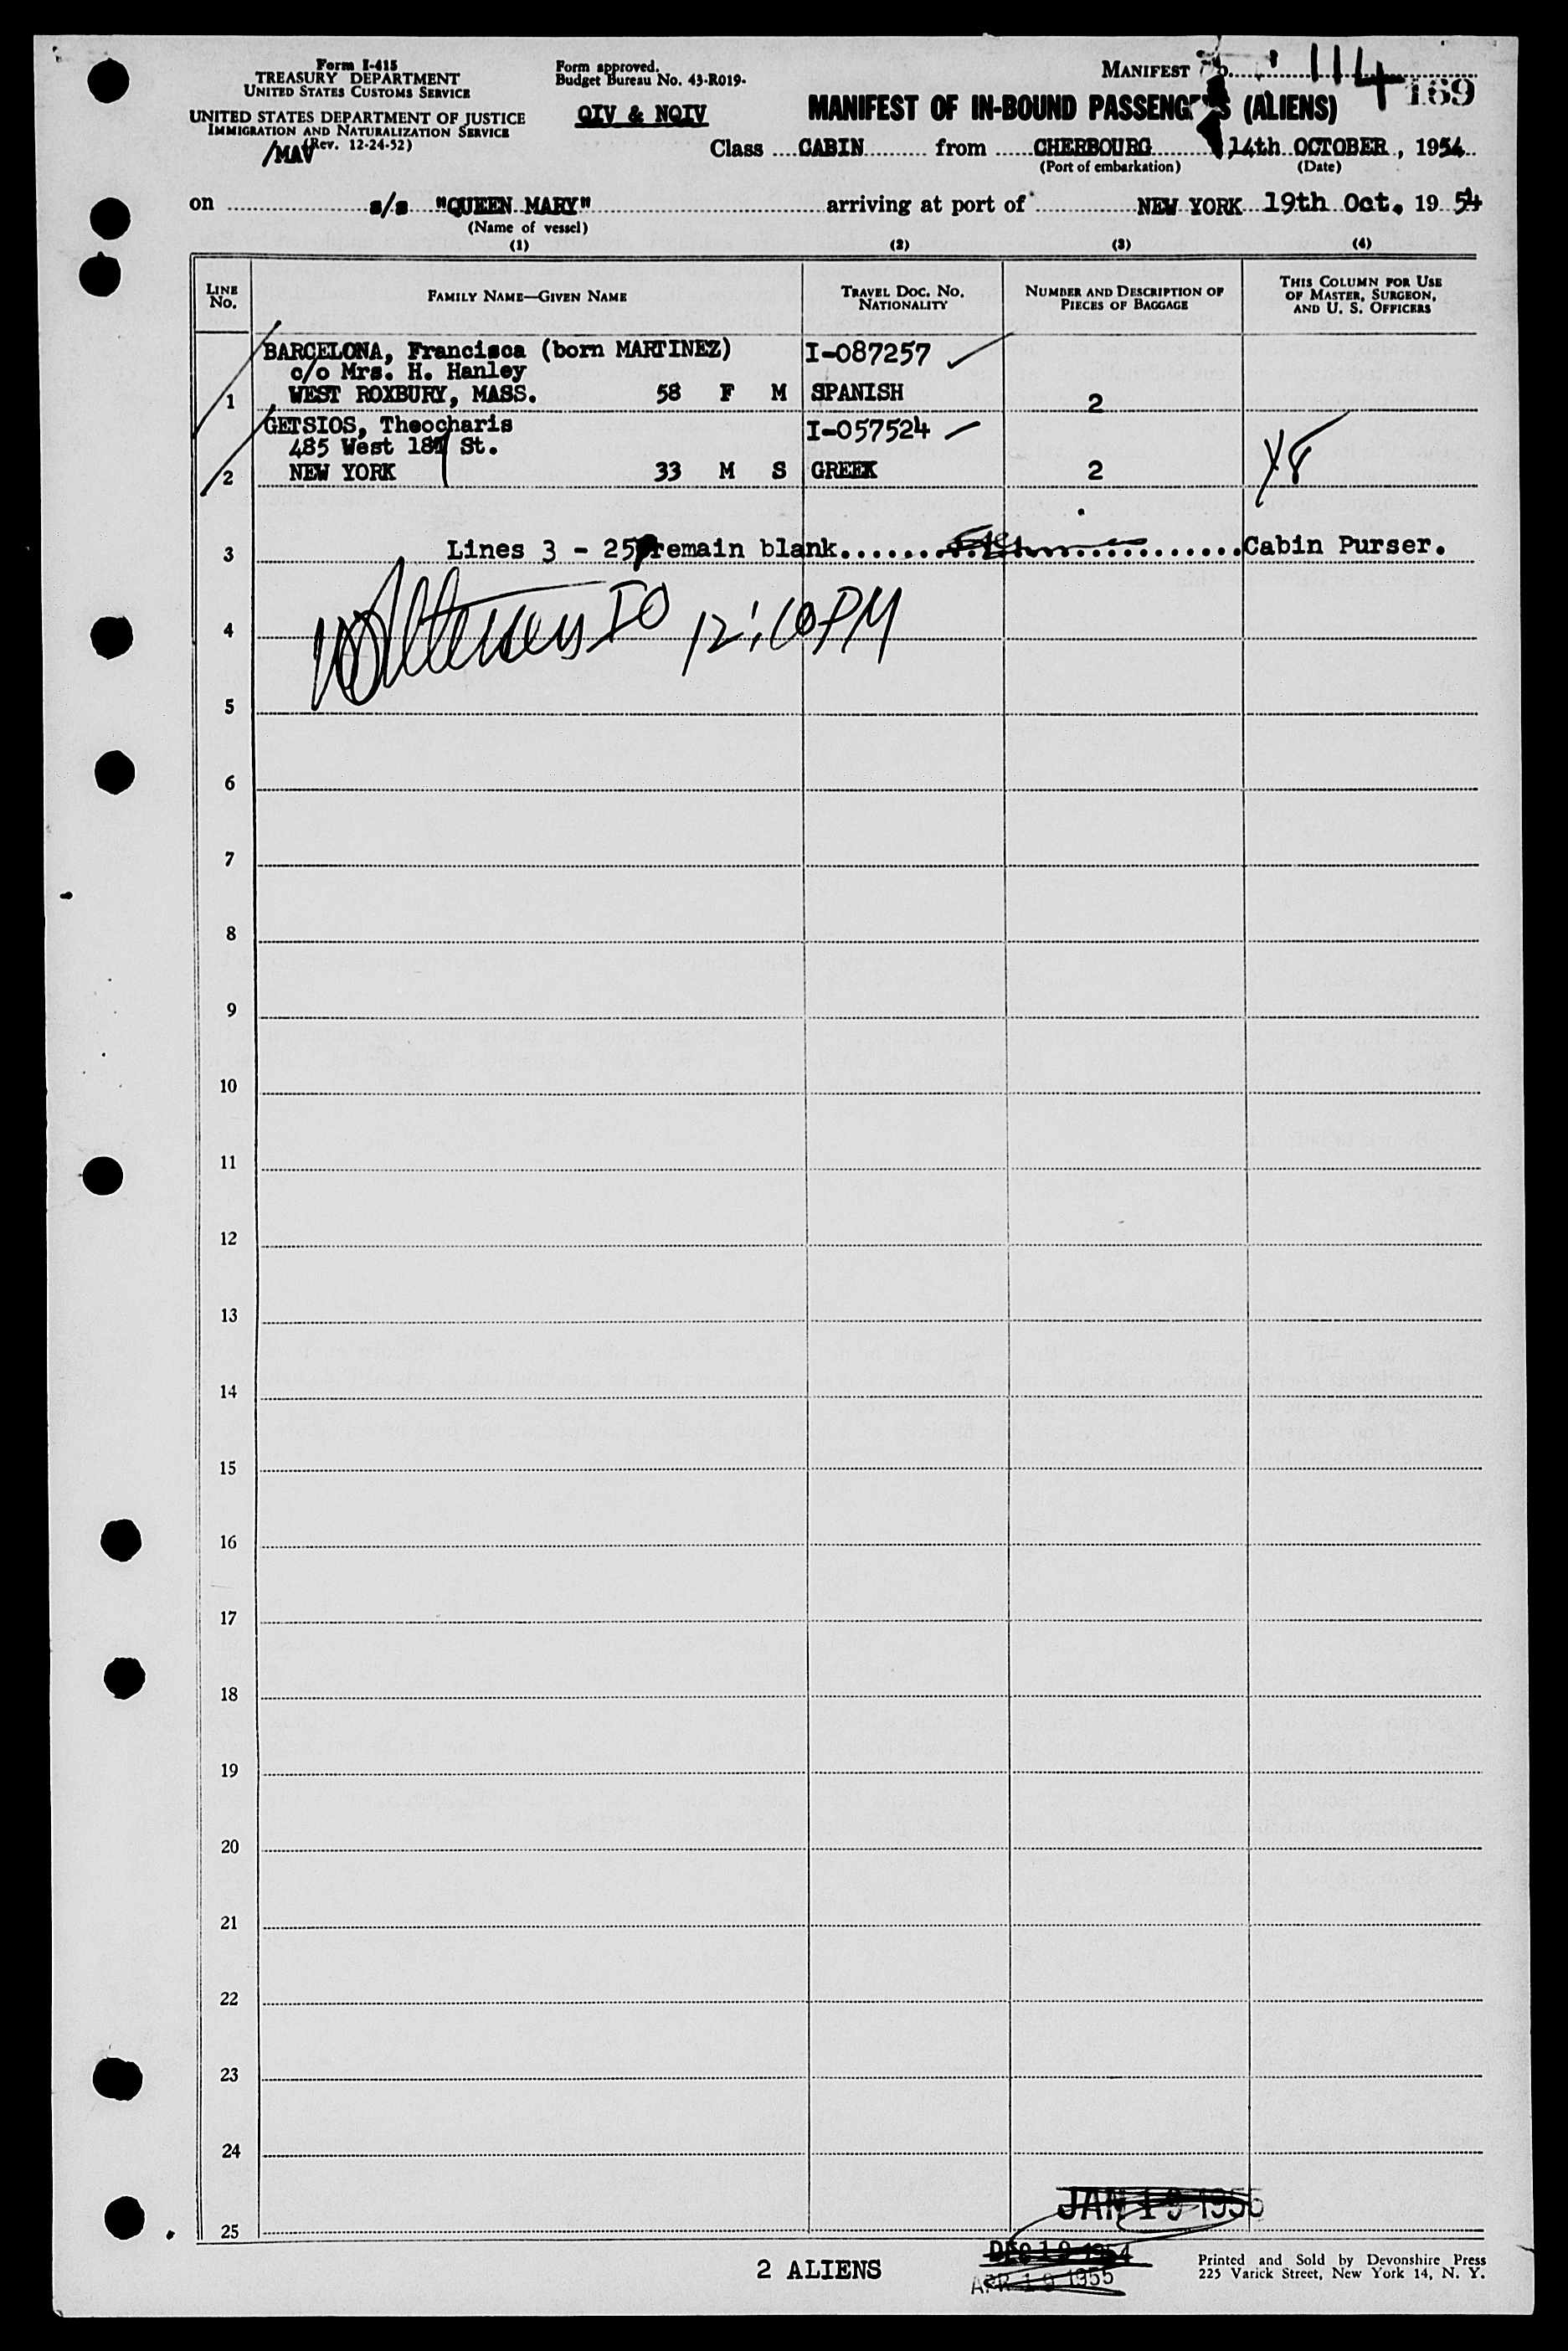 Form I-415
TREASURY DEPARTMENT
UNITED STATES CUSTOMS SERVICE
UNITED STATES DEPARTMENT OF JUSTICE
IMMIGRATION AND NATURALIZATION SERVICE
(Rev. 12-24-52)
/MAV
Form approved.
Budget Bureau No. 43-R019-
QIV & NQIV
MANIFEST 114
169
MANIFEST OF IN-BOUND PASSENGERS (ALIENS)
Class CABIN from CHERBOURG 14th OCTOBER, 1954
(Port of embarkation) (Date)
on s/s "QUEEN MARY" arriving at port of NEW YORK 19th Oct. 1954
(Name of vessel)
(1) (2) (3) (4)
LINE No. FAMILY NAME—GIVEN NAME TRAVEL DOC. No. NATIONALITY NUMBER AND DESCRIPTION OF PIECES OF BAGGAGE THIS COLUMN FOR USE OF MASTER, SURGEON, AND U. S. OFFICERS
BARCELONA, Francisca (born MARTINEZ) I-087257
c/o Mrs. H. Hanley
1 WEST ROXBURY, MASS. 58 F M SPANISH 2
GETSIOS, Theocharis I-057524
485 West St.
2 NEW YORK 33 M S GREEK 2
3 Lines 3 - 25 remain blank Cabin Purser.
12:10 PM
4
5
6
7
8
9
10
11
12
13
14
15
16
17
18
19
20
21
22
23
24
JAN 19 1955
25
2 ALIENS
DEC 19 1954
APR 19 1955
Printed and Sold by Devonshire Press
225 Varick Street, New York 14, N. Y.